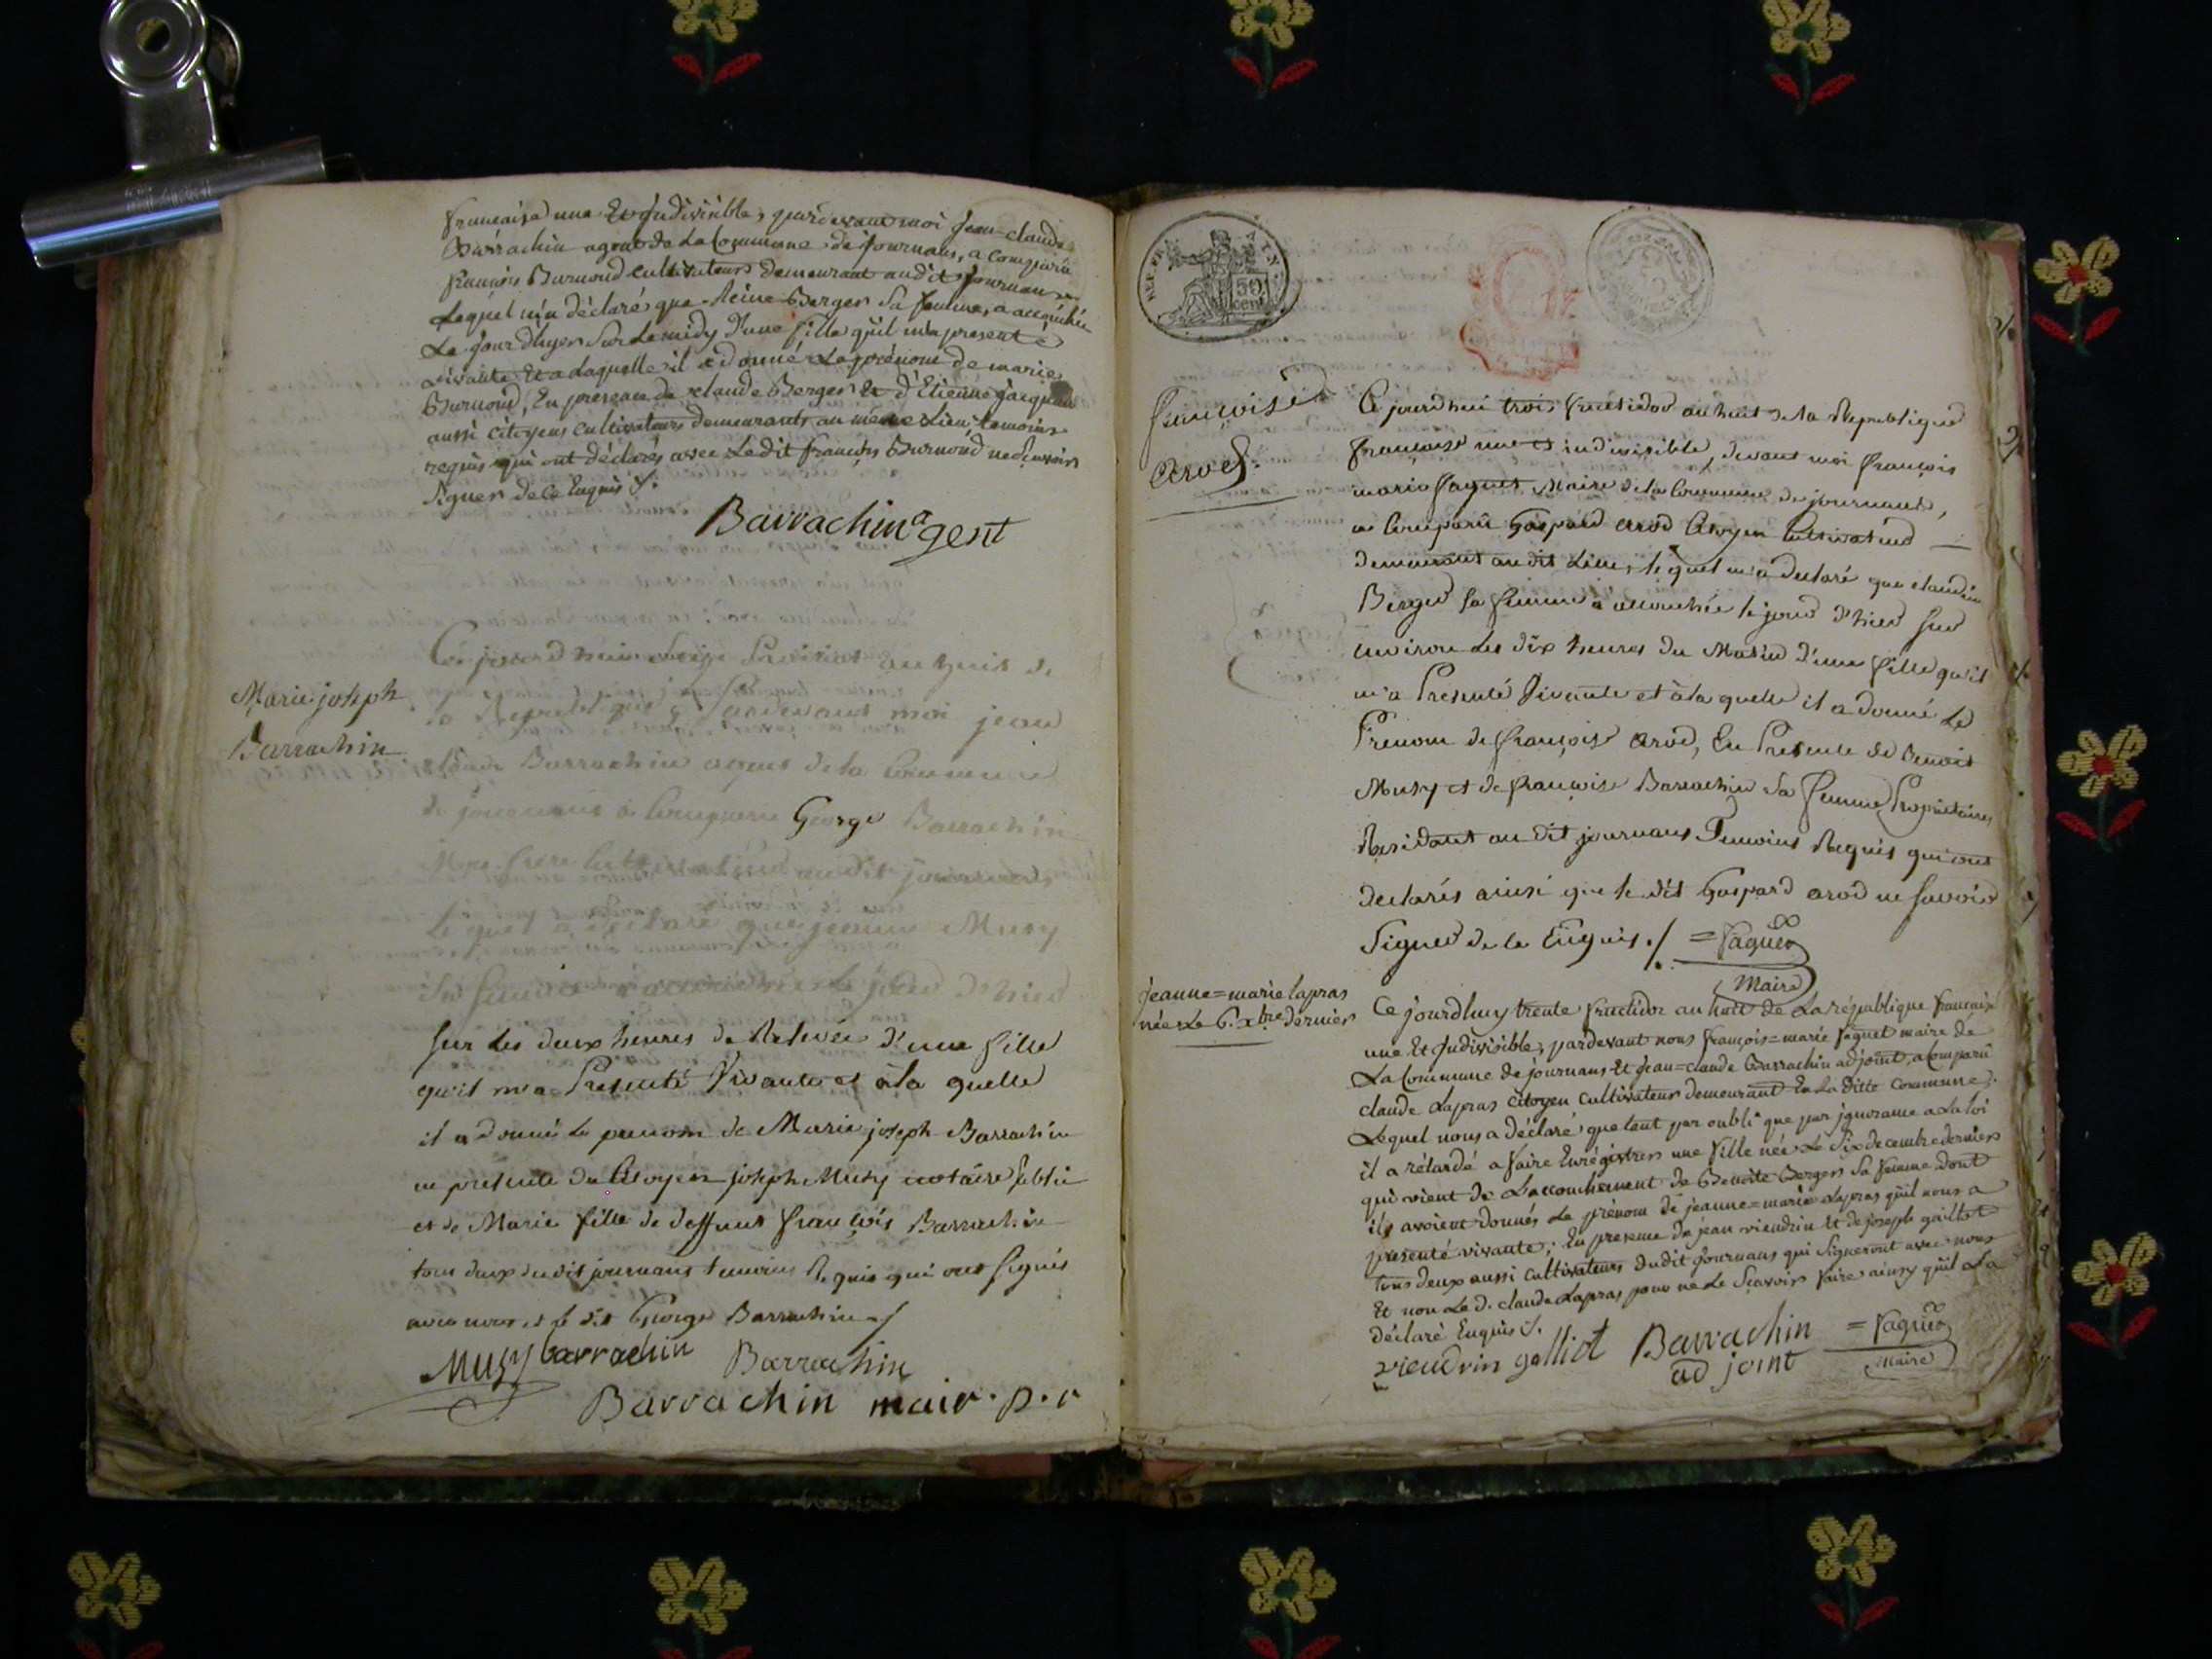 française une Et Indivisible, pardevant moi Jean-claude
Barrachin agent de La Commune de journans, a comparu
françois Burnond cultivateur demeurant audit journans
Lequel m'a déclaré que Reine Berger Sa femme, a accouchée
Le jour d'hyer Sur Le midy d'une fille qu'il m'a présenté
vivante Et a Laquelle il a donné Le prénom de marie
Burnond, En présence de claude Berger Et d'Etienne jacquet
aussi citoyens cultivateurs demeurants au même Lieu, temoins
requis qui ont déclarés avec Ledit françois Burnond ne Sçavoir
Signer de ce Enquis /.
Barrachin agent
Marie joseph
Barrachin
Ce jourd'hui an huit de
la Republique pardevant moi jean
claude Barrachin agent de la Commune
de journans a Comparu George Barrachin
Mon frere Cultivateur au dit journans
le quel a declaré que jeanne Musy
Sa femme a accouchée le jour d'hier
sur les deux heures de Relevée d'une fille
qu'il m'a Presenté Vivante et à la quelle
il a donné le prenom de Marie joseph Barrachin
en presence du Citoyen joseph Musy notaire public
et de Marie fille de deffunt françois Barrachin
tous deux du dit journans temoins Requis qui ont signés
avec nous et le dit George Barrachin /
Musy barrachin Barrachin
Barrachin mair. p. r
REP. FRA
50 cent
françoise
arod.
Ce jourd'hui trois fructidor an huit de la Republique
françoise une et indivisible, devant moi françois
marie faguet Maire de la Commune de journans,
a Comparû Gaspard arod Citoyen Cultivateur
demeurant au dit Lieu, le quel m'a declaré que claudine
Berger sa femme a accouchée le jour d'hier sur
environ les dix heures du Matin d'une fille qu'il
m'a Presenté Vivante et à la quelle il a donné le
Prenom de françoise arod, En Presence de Benoit
Musy et de françoise Barrachin sa femme Proprietaires
Residants au dit journans Temoins Requis qui ont
declarés ainsi que le dit Gaspard arod ne savoir
Signer de ce Enquis ./. = faguet
Maire
jeanne=marie lapras
née Le 6. xbre dernier
Ce jourd'huy trente fructidor an huit de La république française
une Et Indivisible, pardevant nous françois=marie faguet maire de
La Commune de journans Et Jean=claude Barrachin adjoint, a Comparû
claude Lapras citoyen cultivateur demeurant En La ditte commune
Lequel nous a déclaré, que tant par oubli que par ignorance a La loi
il a rétardé a faire Enrégistrer une fille née Le Six decembre dernier
qui vient de L'accouchement de Benoite Berger Sa femme dont
ils avoient donnés Le prénom de jeanne=marie Lapras qu'il nous a
présenté vivante; En présence de jean viendrin Et de joseph galliot
tous deux aussi cultivateurs dudit journans qui Signeront avec nous
Et non Le d. claude Lapras pour ne Le Sçavoir faire ainsy qu'il L'a
déclaré Enquis /.
viendrin galliot Barrachin = faguet
ad joint maire